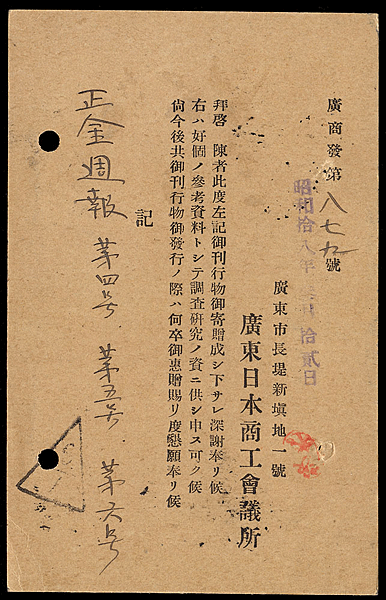 廣商發第八七九號
昭和拾八年 月拾貳日
廣東市長堤新塡地一號
廣東日本商工會議所
拜啓 陳者此度左記御刊行物御寄贈成シ下サレ深謝奉リ候
右ハ好個ノ參考資料トシテ調査硏究ノ資ニ供シ申ス可ク候
尙今後共御刊行物御發行ノ際ハ何卒御惠贈賜リ度懇願奉リ候
記
正金週報 第四号、第五号、第六号